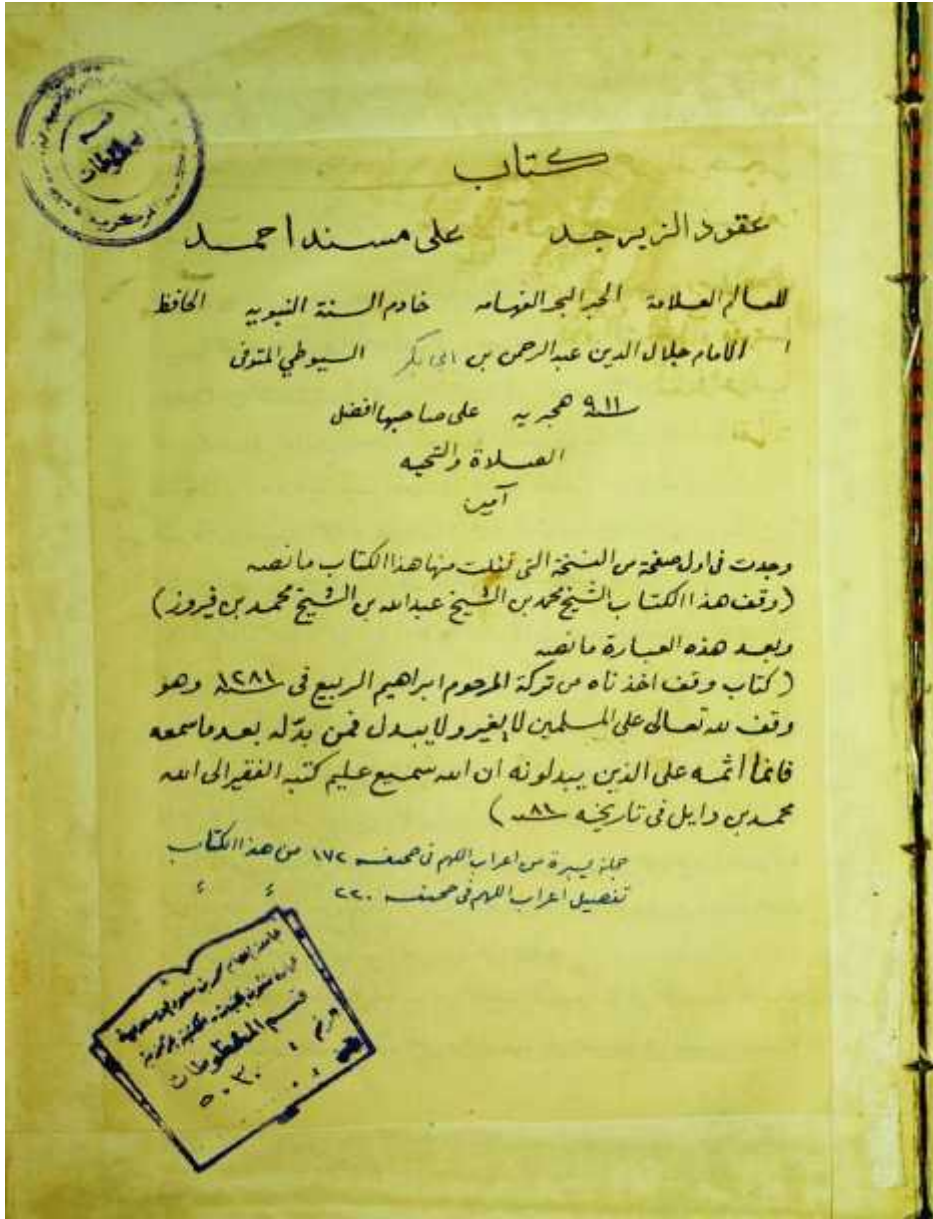 كتاب
عقود الزبرجد على مسند احمد
للعالم العلامة الحبر البحر الفهامه خادم السنة النبويه الحافظ
الامام جلال الدين عبدالرحمن بن ابى بكر السيوطي المتوفى
سنة ٩١١ هجريه على صاحبها افضل
الصلاة والتحيه
آمين
وجدت فى اول صفحة من النسخة التى نقلت منها هذا الكتاب ما نصه
(وقف هذا الكتاب الشيخ محمد بن الشيخ عبدالله بن الشيخ محمد بن فيروز)
وبعد هذه العبارة ما نصه
(كتاب وقف اخذناه من تركة المرحوم ابراهيم الربيع فى سنة ١٢٨١ وهو
وقف لله تعالى على المسلمين لا يغير ولا يبدل فمن بدّله بعد ما سمعه
فانما اثمه على الذين يبدلونه ان الله سميع عليم كتبه الفقير الى الله
محمد بن دايل فى تاريخه سنة ٨١)
جملة يسيرة من اعراب اللهم فى صحيفة ١٧٢ من هذا الكتاب
تفصيل اعراب اللهم فى صحيفة ٢٢٠ ء ء
جامعة الإمام محمد بن سعود الإسلامية
عمادة شئون المكتبات - المكتبة المركزية
قسم المخطوطات
رقم
٥٠٣٠